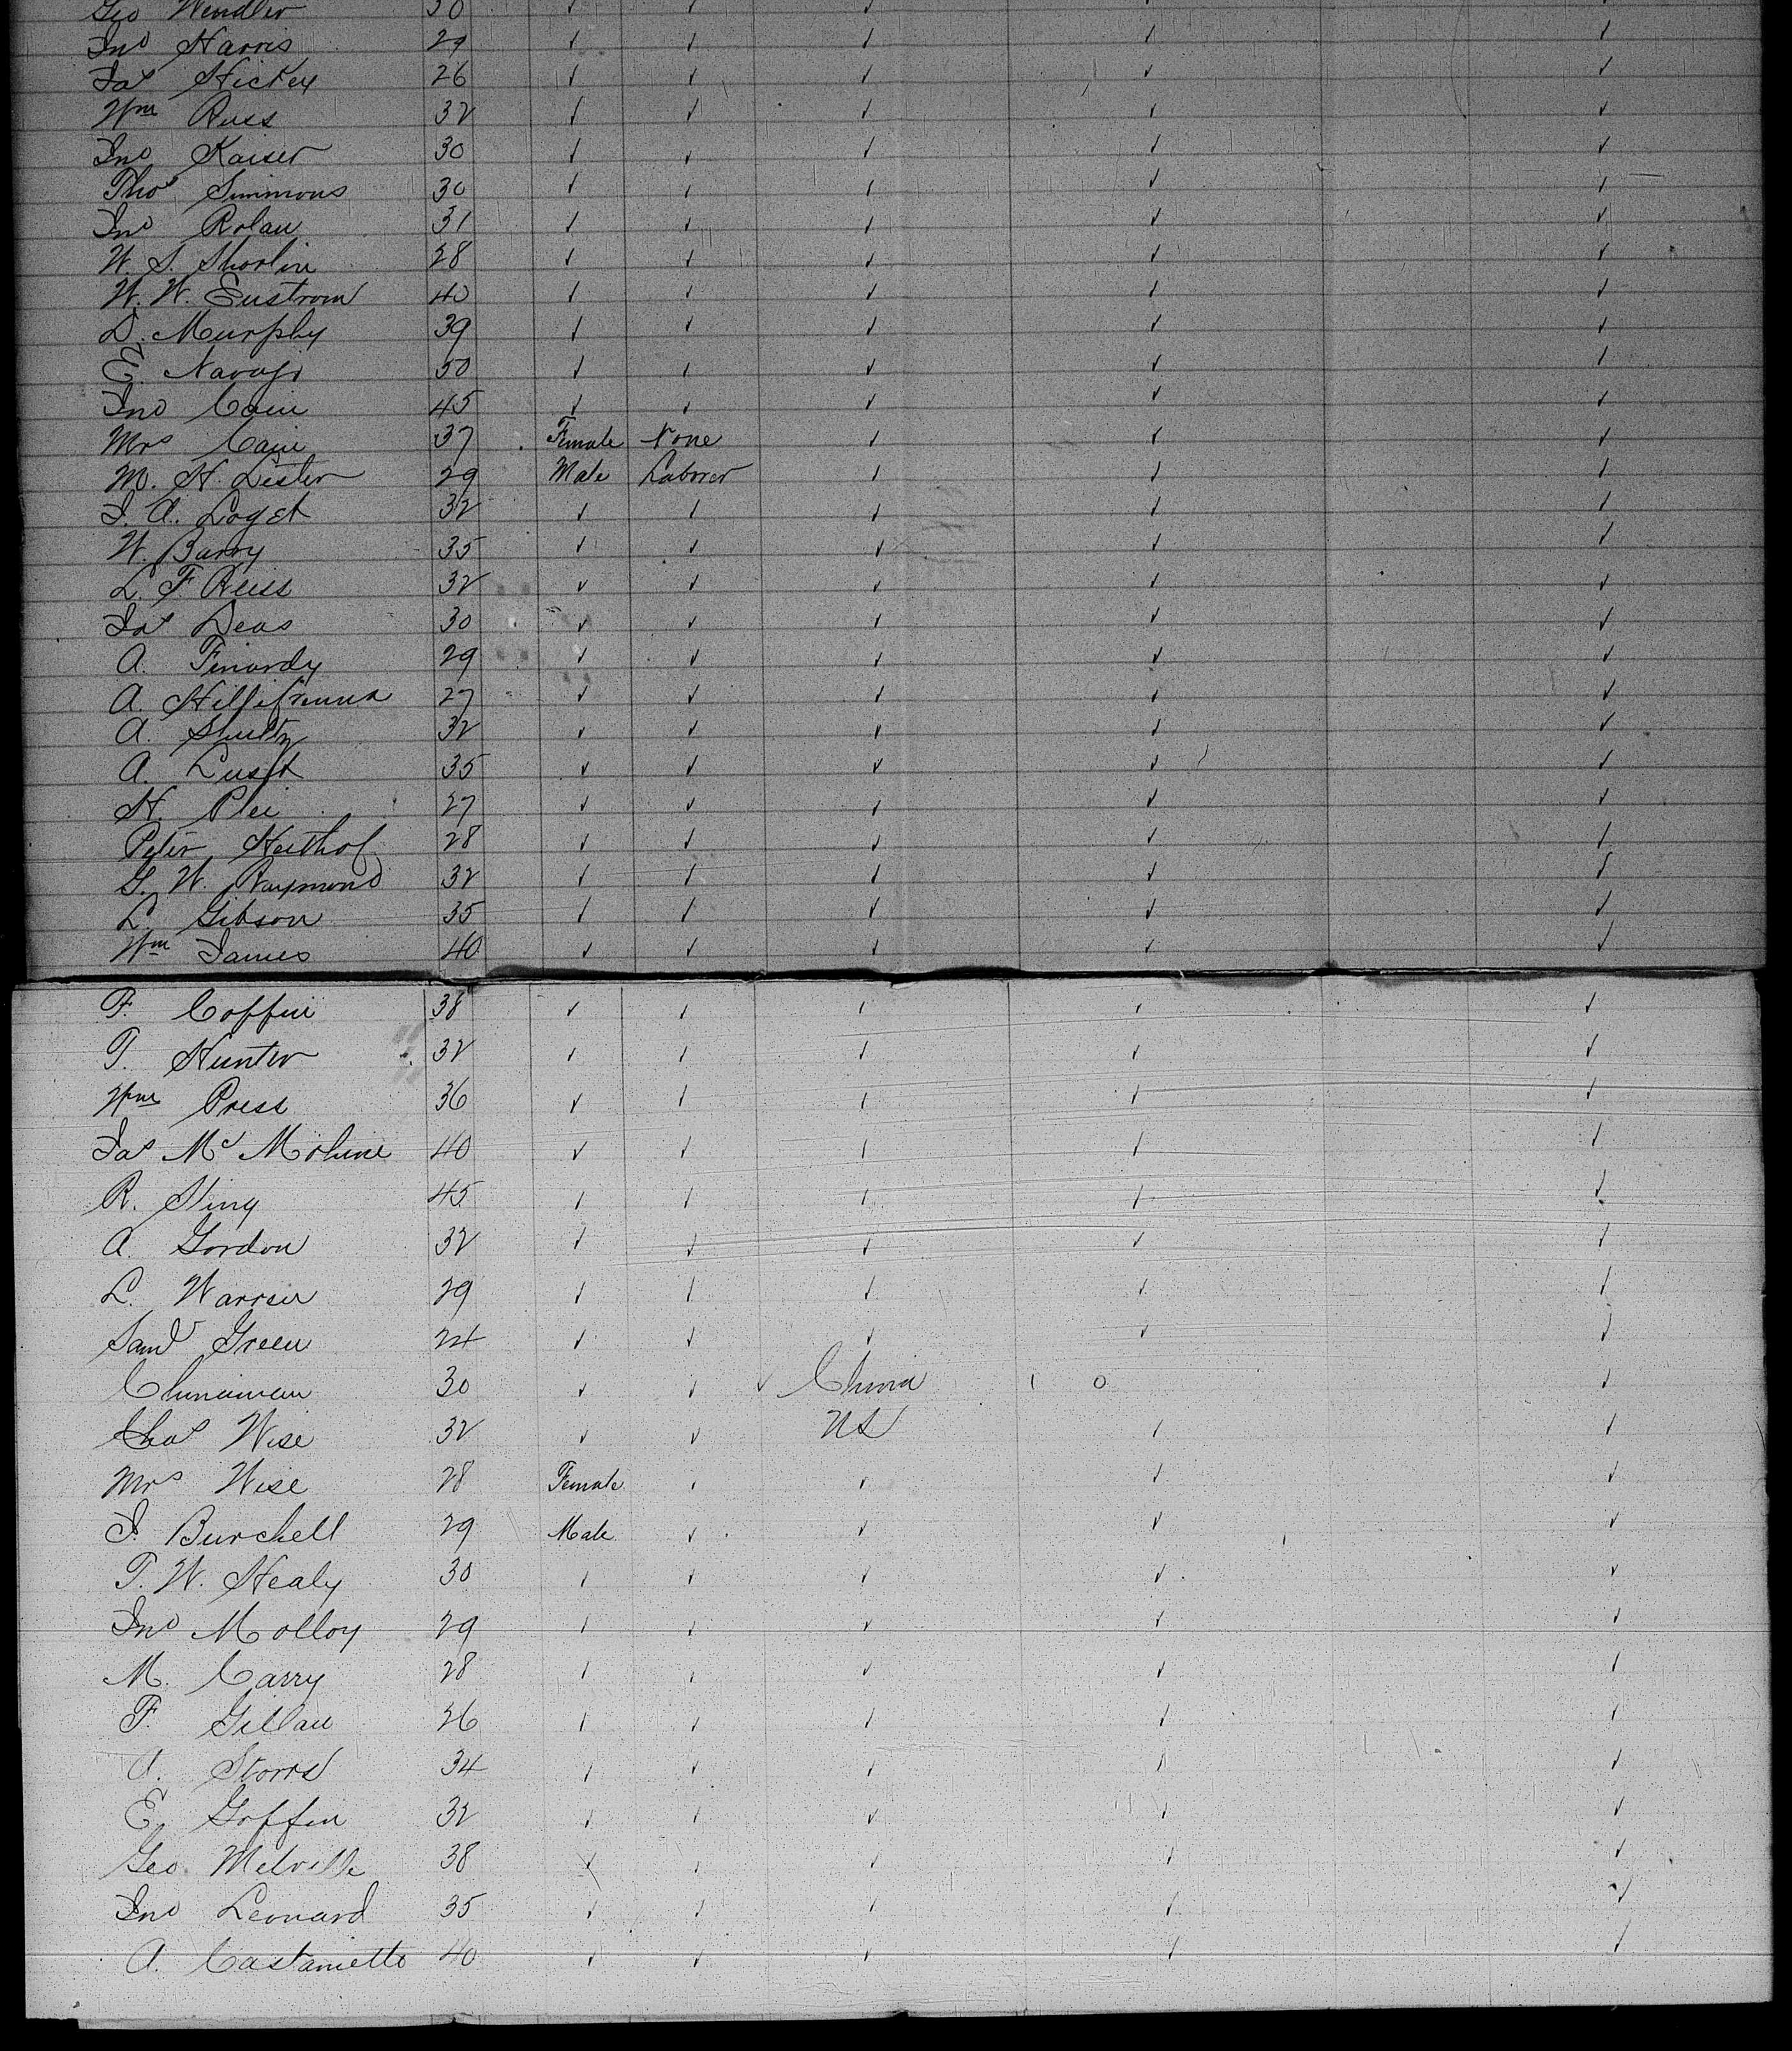 Geo Wendler 30 ✓ ✓ ✓ ✓ ✓
Jno Harris 29 ✓ ✓ ✓ ✓ ✓
Jas Hickey 26 ✓ ✓ ✓ ✓ ✓
Wm Russ 32 ✓ ✓ ✓ ✓ ✓
Jno Kaiser 30 ✓ ✓ ✓ ✓ ✓
Thos Simmons 30 ✓ ✓ ✓ ✓ ✓
Jno Rolan 31 ✓ ✓ ✓ ✓ ✓
W. S. Shorlin 28 ✓ ✓ ✓ ✓ ✓
W. W. Eustrom 40 ✓ ✓ ✓ ✓ ✓
D. Murphy 39 ✓ ✓ ✓ ✓ ✓
E. Navajo 50 ✓ ✓ ✓ ✓ ✓
Jno Cain 45 ✓ ✓ ✓ ✓ ✓
Mrs Cain 37 Female None ✓ ✓ ✓
M. H. Lester 29 Male Laborer ✓ ✓ ✓
J. A. Loget 32 ✓ ✓ ✓ ✓ ✓
W. Barry 35 ✓ ✓ ✓ ✓ ✓
L. F Reiss 32 ✓ ✓ ✓ ✓ ✓
Jas Deas 30 ✓ ✓ ✓ ✓ ✓
A. Finardy 29 ✓ ✓ ✓ ✓ ✓
A. 27 ✓ ✓ ✓ ✓ ✓
A. Shultz 32 ✓ ✓ ✓ ✓ ✓
A. 35 ✓ ✓ ✓ ✓ ✓
H. Plei 27 ✓ ✓ ✓ ✓ ✓
Peter Heithof 28 ✓ ✓ ✓ ✓ ✓
G. W. Raymond 32 ✓ ✓ ✓ ✓ ✓
L. Gibson 35 ✓ ✓ ✓ ✓ ✓
Wm James 40 ✓ ✓ ✓ ✓ ✓
F. Coffin 38 ✓ ✓ ✓ ✓ ✓
T. Hunter 32 ✓ ✓ ✓ ✓ ✓
Wm Press 36 ✓ ✓ ✓ ✓ ✓
Jas Mc Mohine 40 ✓ ✓ ✓ ✓ ✓
R. Sting 45 ✓ ✓ ✓ ✓ ✓
A. Gordon 32 ✓ ✓ ✓ ✓ ✓
L. Warren 29 ✓ ✓ ✓ ✓ ✓
Saml Green 24 ✓ ✓ ✓ ✓ ✓
Chinaman 30 ✓ ✓ ✓ China 1 0 ✓
Chas Wise 32 ✓ ✓ US ✓ ✓
Mrs Wise 28 Female ✓ ✓ ✓ ✓
J. Burchell 29 Male ✓ ✓ ✓ ✓
T. W. Healy 30 ✓ ✓ ✓ ✓ ✓
Jno Molloy 29 ✓ ✓ ✓ ✓ ✓
M. Carry 28 ✓ ✓ ✓ ✓ ✓
F. Gillan 26 ✓ ✓ ✓ ✓ ✓
A. Storrs 34 ✓ ✓ ✓ ✓ ✓
E. Goffin 32 ✓ ✓ ✓ ✓ ✓
Geo. Melville 38 ✓ ✓ ✓ ✓ ✓
Jno Leonard 35 ✓ ✓ ✓ ✓ ✓
A. Castanietto 40 ✓ ✓ ✓ ✓ ✓